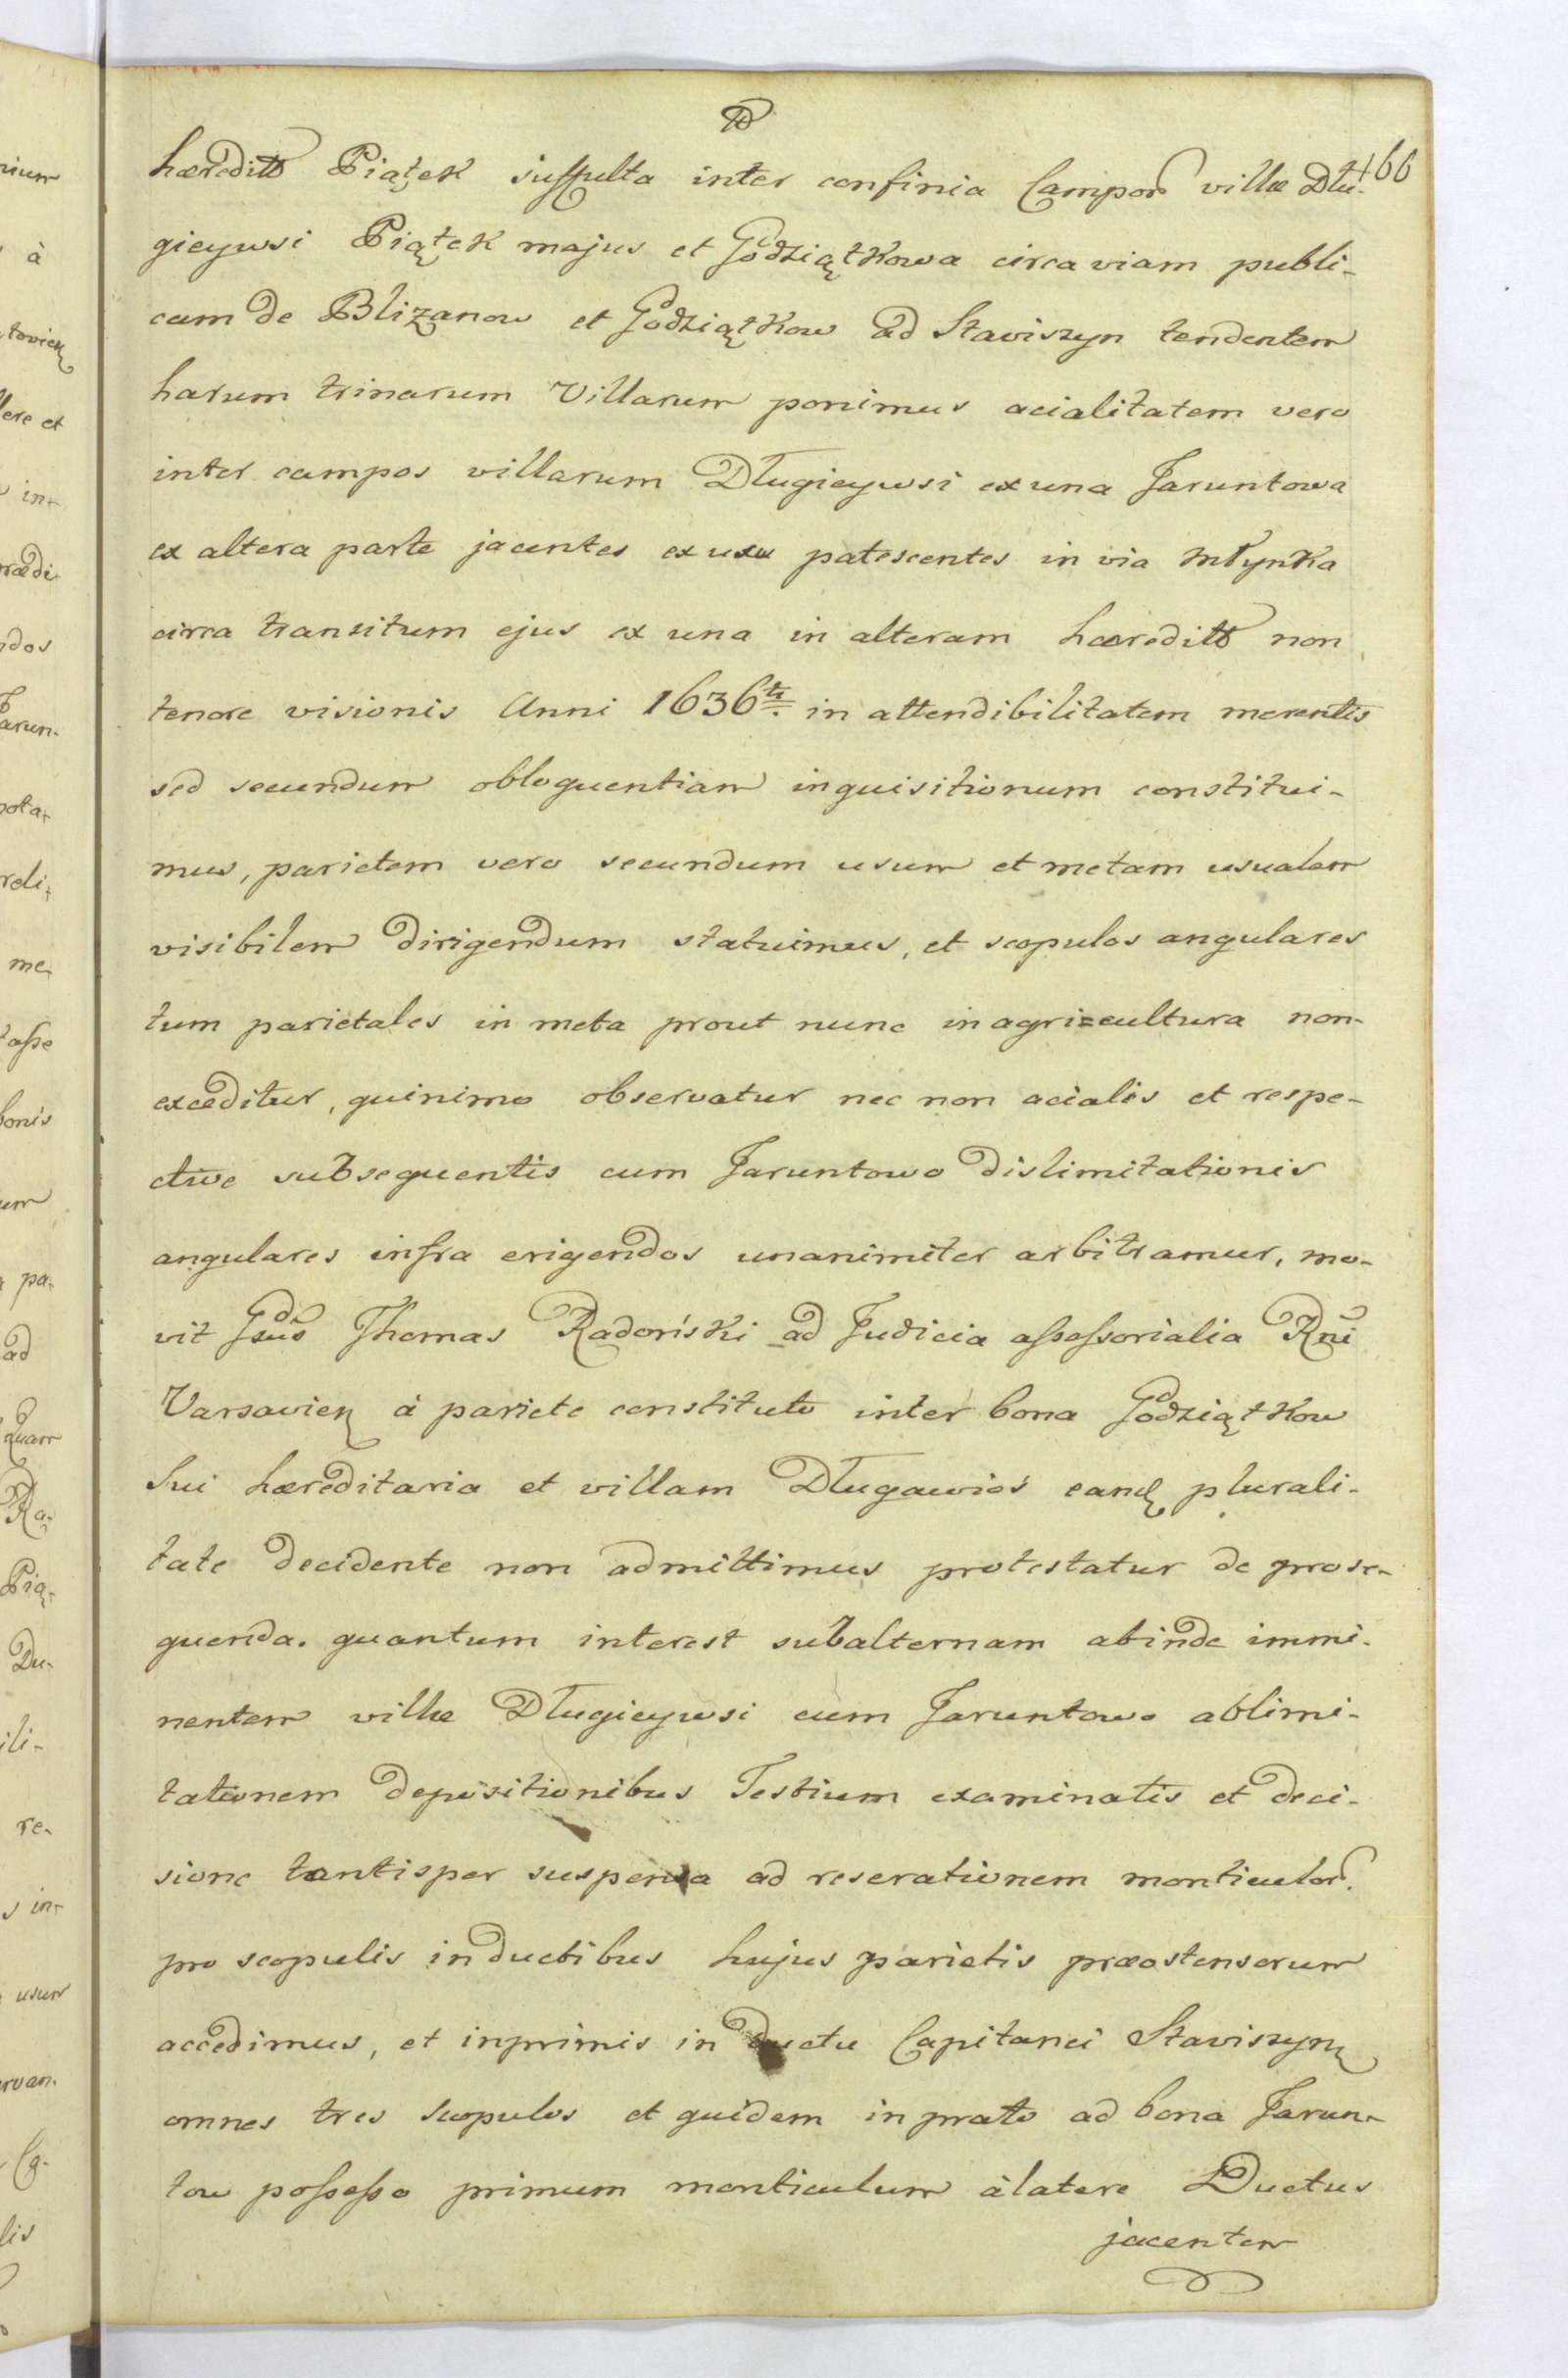 166
hæreditt Piątek suffulta inter confinia Campor villæ Dłu-
gieywsi Piątek majus et Godziątkowa circa viam publi-
cam de Blizanow et Godziątkow ad Staviszyn tendentem
harum trinarum Villarum ponimus acialitatem vero
inter campos villarum Długieywsi ex una Jaruntowa
ex altera parte jacentes ex usu patescentes in via Młynka
circa transitum ejus ex una in alteram hæreditt non
tenore visionis Anni 1636ti. in attendibilitatem merentis
sed secundum obloquentiam inquisitionum constitui-
mus, parietem vero secundum usum et metam usualem
visibilem dirigendum statuimus, et scopulos angulares
tum parietales in meta prout nunc in agri=cultura non-
exceditur, quinimo observatur nec non acialis et respe-
ctive subsequentis cum Jaruntowo dislimitationis
angulares infra erigendos unanimiter arbitramur, mo-
vit Gdsus Thomas Radoński ad Judicia assessorialia Rni
Varsavien à pariete constituto inter bona Godziątkow
Sui hæreditaria et villam Długawieś eand plurali-
tate decidente non admittimus protestatur de prose-
quenda. quantum interest subalternam abinde immi-
nentem villæ Długieywsi cum Jaruntowo ablimi-
tationem depositionibus Testium examinatis et deci-
sione tantisper suspensa ad reserationem monticulor.
pro scopulis in ductibus hujus parietis præostensorum
accedimus, et inprimis in ductu Capitanei Staviszyn
omnes tres scopulos et quidem in prato ad bona Jarun-
tow possesso primum monticulum à latere Ductus
jacentem